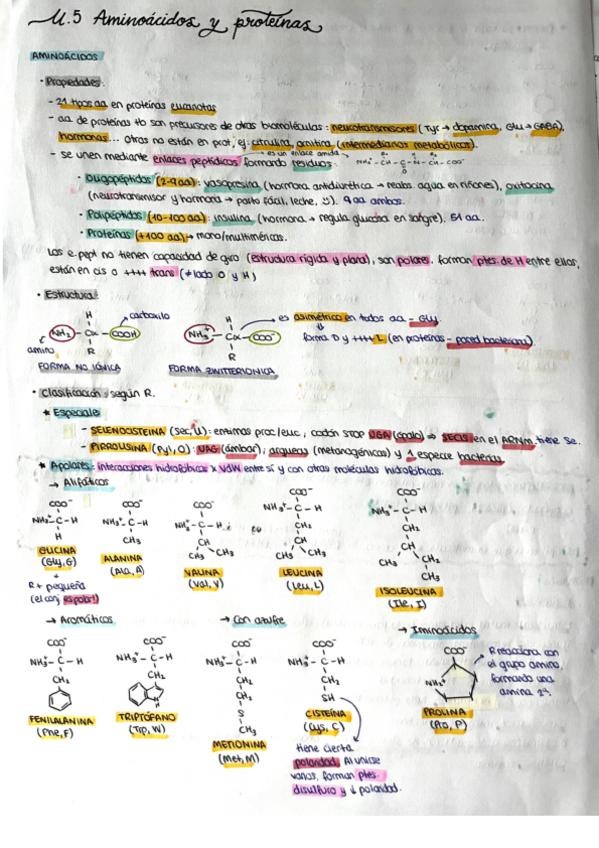 U.5 Aminoácidos y proteínas
AMINOÁCIDOS
· Propiedades:
- 21 tipos aa en proteínas eucariotas
- aa de proteínas tb son precursores de otras biomoléculas: neurotransmisores (Tyr → dopamina, Glu → GABA),
hormonas... otras no están en prot, ej: citrulina, ornitina (intermediarios metabólicos).
- se unen mediante enlaces peptídicos formando residuos:
→ es un enlace amida
· Oligopéptidos (2-9 aa): vasopresina (hormona antidiurética → reabs. agua en riñones), oxitocina
(neurotransmisor y hormona → parto fácil, leche, ☺). 9 aa ambos.
· Polipéptidos (10-100 aa): insulina (hormona → regula glucosa en sangre). 51 aa.
· Proteínas (+100 aa) → mono/multiméricas.
Los e. pept no tienen capacidad de giro (estructura rígida y plana), son polares, forman ptes. de H entre ellos,
están en cis o ++++ trans (≠ lado O y H)
· Estructura:
H carboxilo
NH2 - Cα - COOH
amino R
FORMA NO IÓNICA
H
NH3+ - Cα - COO-
R
FORMA ZWITTERIONICA
es asimétrico en todos aa - Gly.
forma D y ++++ L (en proteínas - pared bacteriana).
· Clasificación: según R.
* Especiales
- SELENOCISTEINA (Sec, U): enzimas proc/euc, codón STOP UGA (ópalo) ⇒ SECIS en el ARNm tiene Se.
- PIRROLISINA (Pyl, O): UAG (ámbar), arqueas (metanogénicas) y 1 especie bacteria.
* Apolares: interacciones hidrofóbicas x VdW entre sí y con otras moléculas hidrofóbicas.
→ Alifáticos
COO-
NH3+ - C - H
H
GLICINA
(Gly, G)
R + pequeña
(el conj es polar!)
COO-
NH3+ - C - H
CH3
ALANINA
(Ala, A)
COO-
NH3+ - C - H
CH
CH3 CH3
VALINA
(Val, V)
COO-
NH3+ - C - H
CH2
CH
CH3 CH3
LEUCINA
(Leu, L)
COO-
NH3+ - C - H
CH2
CH
CH3 CH2
CH3
ISOLEUCINA
(Ile, I)
→ Aromáticos
COO-
NH3+ - C - H
CH2
FENILALANINA
(Phe, F)
COO-
NH3+ - C - H
CH2
N
H
TRIPTÓFANO
(Trp, W)
→ Con azufre
COO-
NH3+ - C - H
CH2
CH2
S
CH3
METIONINA
(Met, M)
COO-
NH3+ - C - H
CH2
SH
CISTEÍNA
(Cys, C)
tiene cierta
polaridad. Al unirse
varios, forman ptes.
disulfuro y ↓ polaridad.
→ Iminoácidos
COO-
NH2+
PROLINA
(Pro, P)
R reacciona con
el grupo amino,
formando una
amina 2ª.